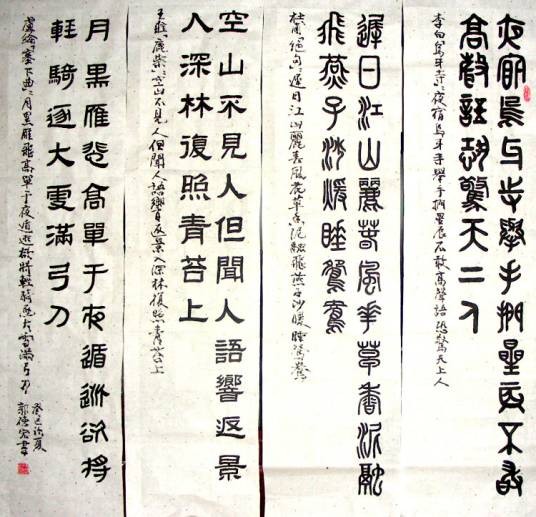 夜宿烏牙寺舉手捫星辰不敢
高聲語恐驚天上人
李白烏牙寺：夜宿烏牙寺舉手捫星辰不敢高聲語恐驚天上人
遲日江山麗春風華草香泥融
飛燕子沙煖睡鴛鴦
杜甫絕句：遲日江山麗春風花草香泥融飛燕子沙暖睡鴛鴦
空山不見人但聞人語響返景
入深林復照青苔上
王維鹿柴：空山不見人但聞人語響返景入深林復照青苔上
月黑雁飛高單于夜遁逃欲將
輕騎逐大雪滿弓刀
盧綸塞下曲：月黑雁飛高單于夜遁逃欲將輕騎逐大雪滿弓刀
癸巳初夏
郭德宏書